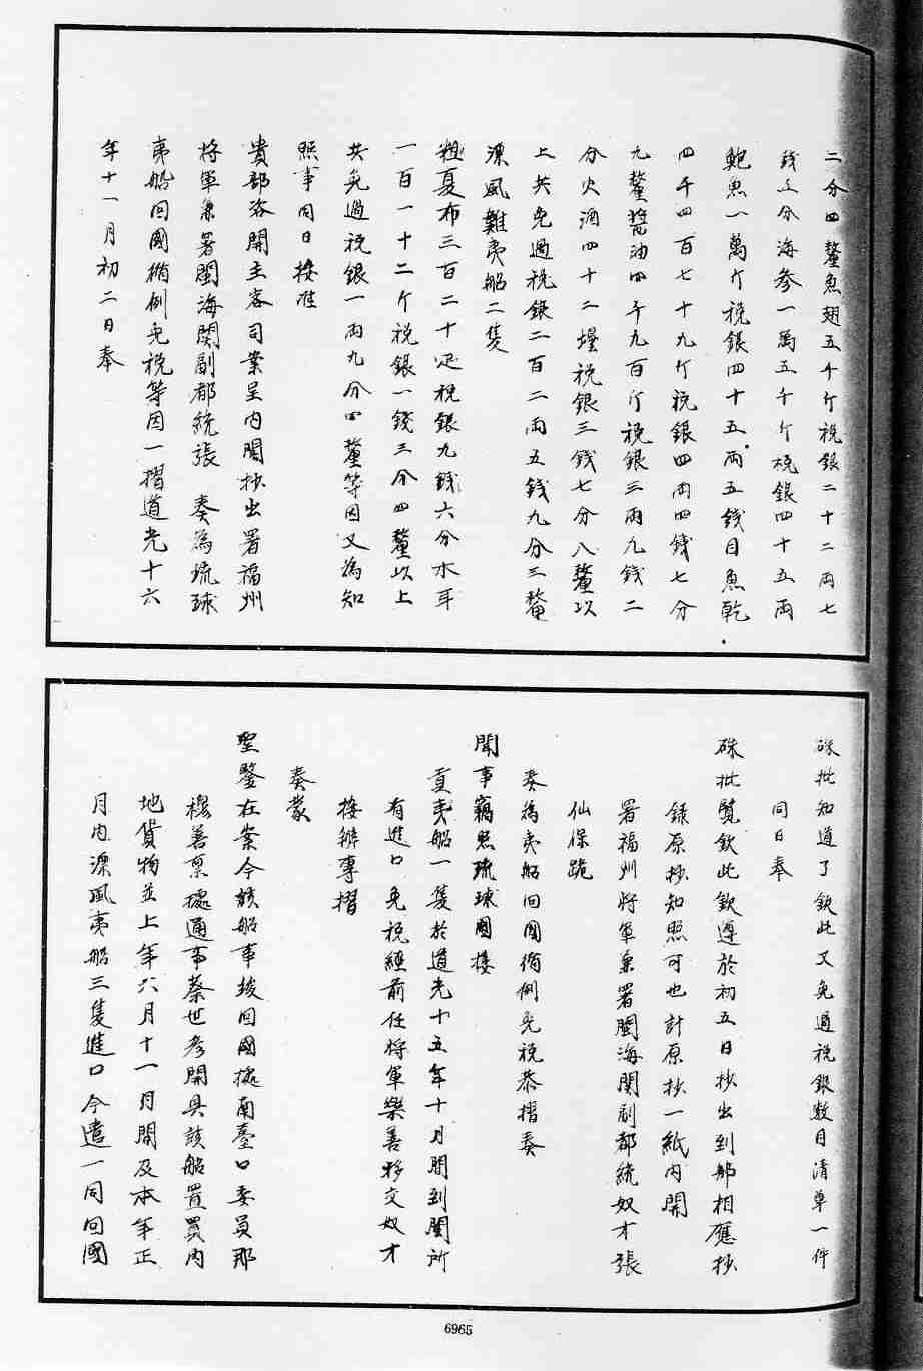 二分四釐魚翅五千斤税銀二十二兩七
錢五分海參一萬五千斤税銀四十五兩
鮑魚一萬斤税銀四十五兩五錢目魚乾
四千四百七十九斤税銀四兩四錢七分
九釐醬油四千九百斤税銀三兩九錢二
分火酒四十二壜税銀三錢七分八釐以
上共免過税銀二百二兩五錢九分三釐
漂風難夷船二隻
粗夏布三百二十疋税銀九錢六分木耳
一百一十二斤税銀一錢三分四釐以上
共免過税銀一兩九分四釐等因又為知
照事同日接准
貴部咨開主客司案呈内閣抄出署福州
將軍兼署閩海關副都統張 奏為琉球
夷船回國循例免税等因一摺道光十六
年十一月初二日奉
硃批知道了欽此又免過税銀數目清單一件
同日奉
硃批覽欽此欽遵於初五日抄出到部相應抄
錄原抄知照可也計原抄一紙内開
署福州將軍兼署閩海關副都統奴才張
仙保跪
奏為夷船回國循例免税恭摺奏
聞事竊照琉球國接
貢夷船一隻於道光十五年十月間到關所
有進口免税經前任將軍樂善移交奴才
接辦專摺
奏蒙
聖鑒在案今該船事竣回國據南臺口委員那
穆善稟據通事蔡世彥開具該船置買内
地貨物並上年六月十一月間及本年正
月内漂風夷船三隻進口今遣一同回國
6965